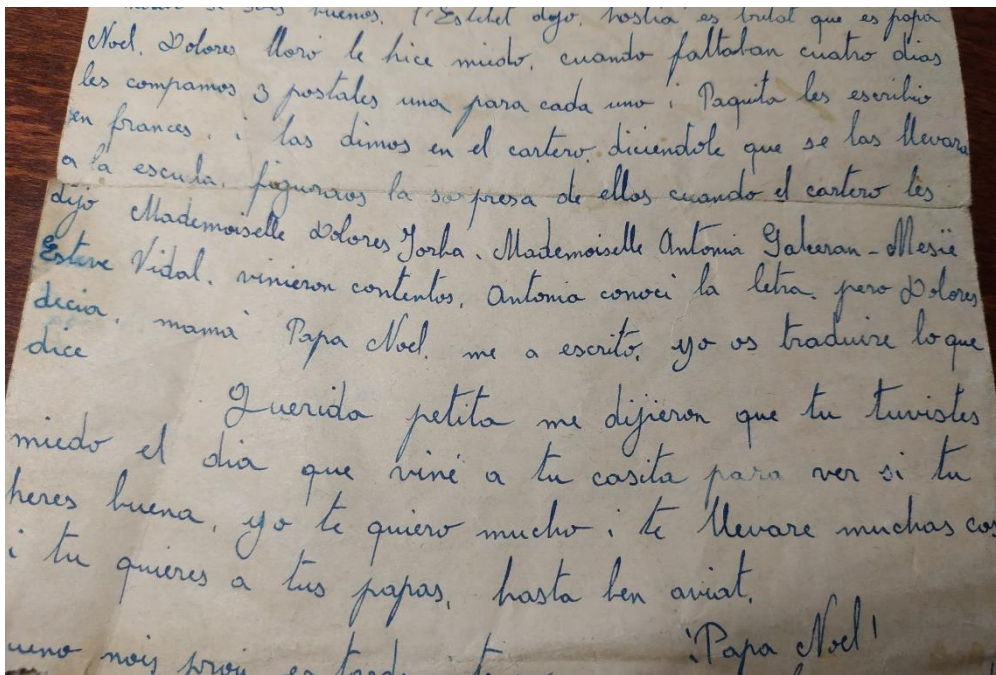 si sois buenos. (Estebet dijo, hostia es brutal que es papa
Noel. Dolores lloró le hice miedo, cuando faltaban cuatro dias
les compamos 3 postales una para cada uno i Paquita les escribio
en frances, i las dimos en el cartero, diciendole que se las llevara
a la escuela, figuraros la sorpresa de ellos cuando el cartero les
dijo Mademoiselle Dolores Jorba. Mademoiselle Antonia Galceran - Mesïe
Esteve Vidal. vinieron contentos, Antonia conoci la letra, pero Dolores
decia, mamá Papa Noel. me a escrito, yo os traduire lo que
dice
Querida petita me dijieron que tu tuvistes
miedo el dia que viné a tu casita para ver si tu
heres buena, yo te quiero mucho i te llevare muchas cos
i tu quieres a tus papas, hasta ben aviat.
¡Papa Noel!
nois prou es tard